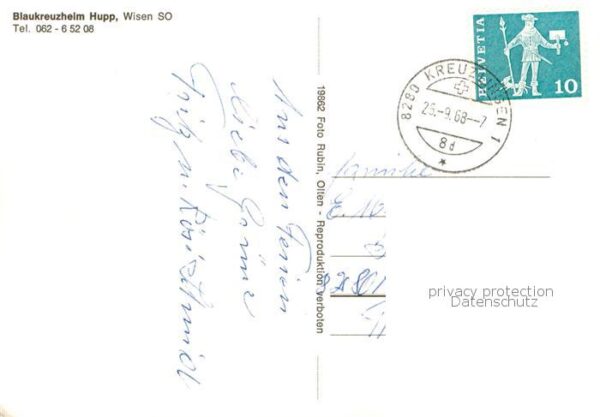 Blaukreuzheim Hupp, Wisen SO
Tel. 062 - 6 52 08
HELVETIA
10
8280 KREUZLINGEN 1
25.-9.68--7
8d
19862 Foto Rubin, Olten - Reproduktion verboten
Aus den Ferien
Liebe Grüsse
Fritz u. Rösi Schmidt
Familie
E. M
8280
privacy protection
Datenschutz